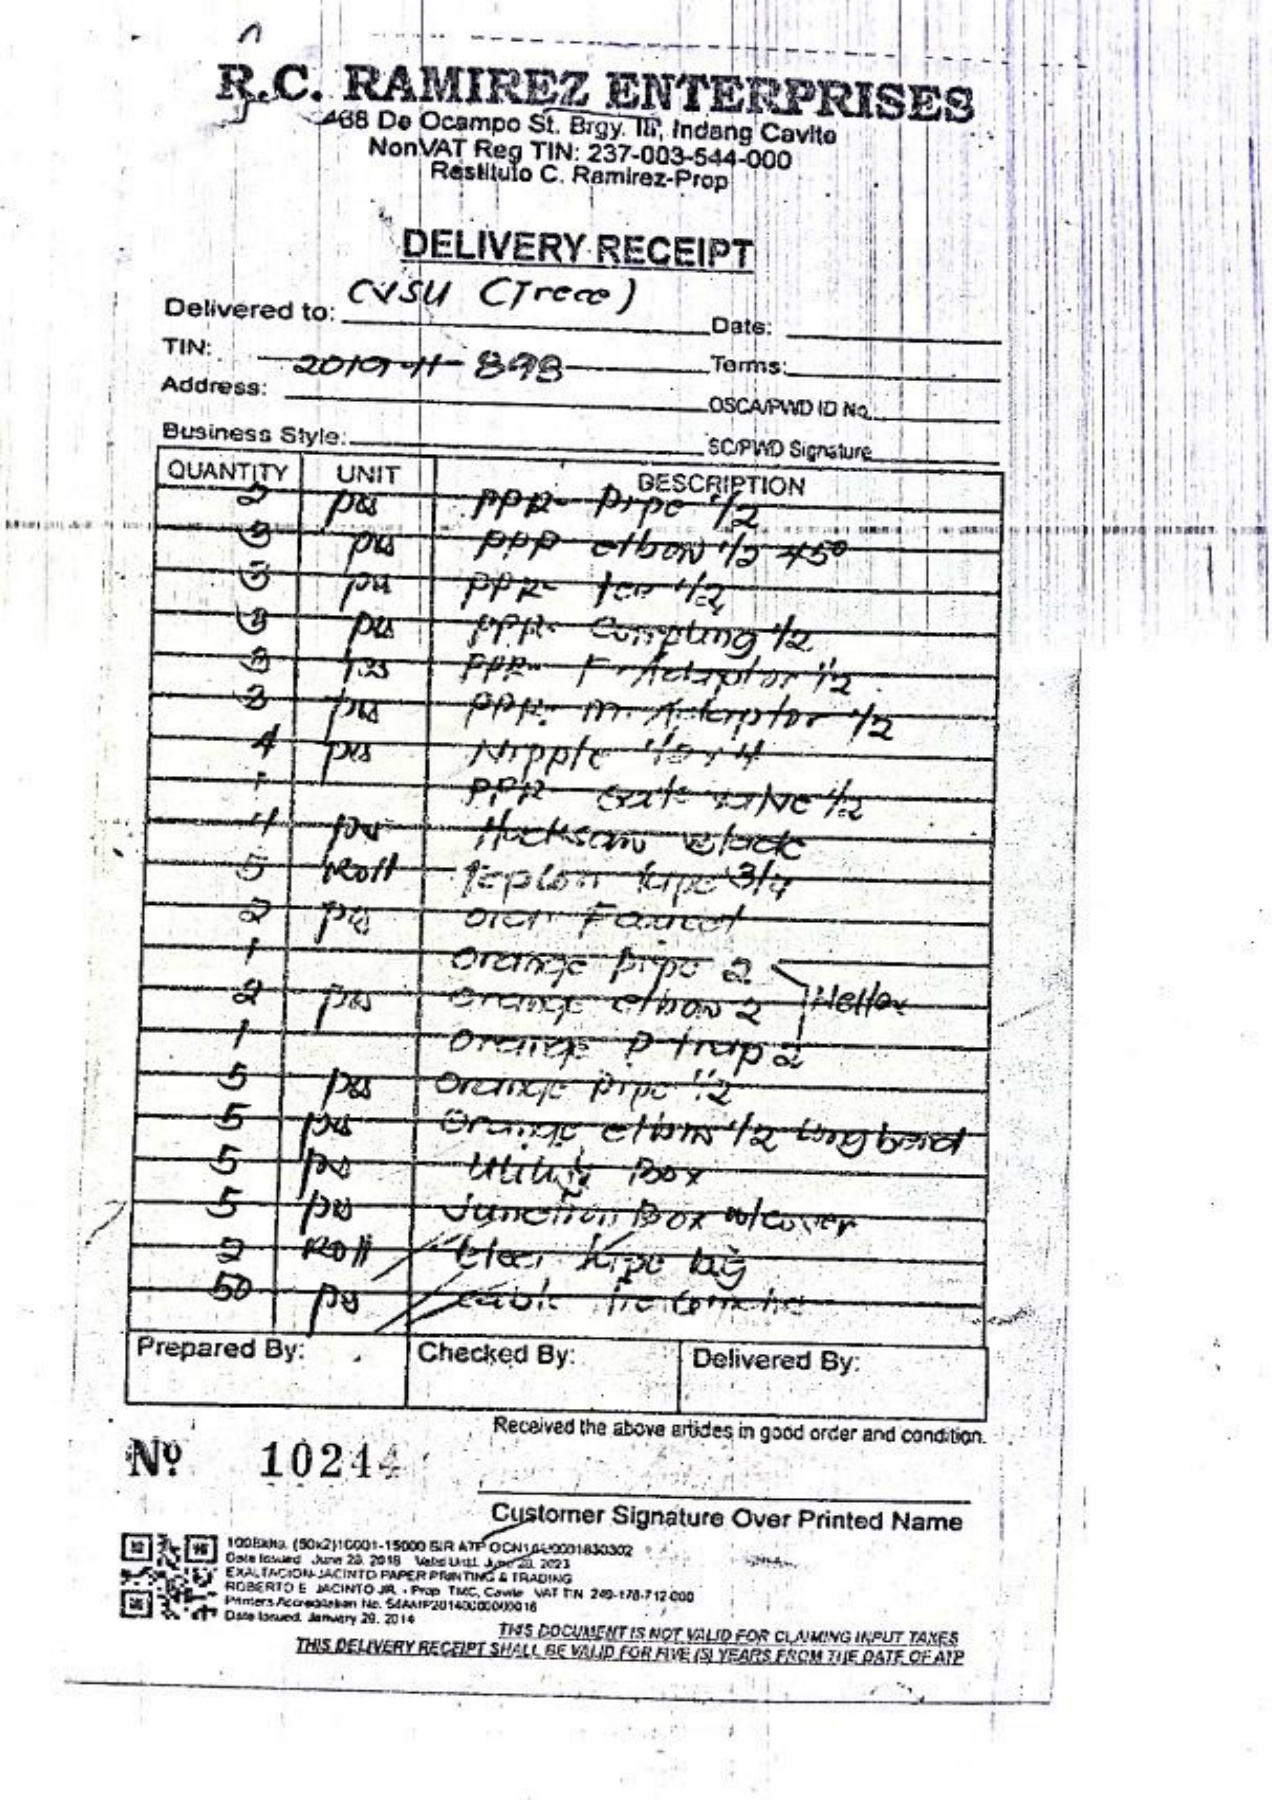 R.C. RAMIREZ ENTERPRISES
468 De Ocampo St. Brgy. III, Indang Cavite
NonVAT Reg TIN: 237-003-544-000
Restituto C. Ramirez-Prop
DELIVERY RECEIPT
Delivered to: CVSU (Trece) Date:
TIN: 2019-11-898 Terms:
Address: OSCA/PWD ID No.
Business Style: SC/PWD Signature
QUANTITY UNIT DESCRIPTION
2 pcs PPR- Pipe 1/2
3 pcs PPR elbow 1/2 45°
3 pcs PPR- tee 1/2
3 pcs PPR- Coupling 1/2
3 pcs PPR- F-Adaptor 1/2
3 pcs PPR- M. Adaptor 1/2
4 pcs Nipple 1/2 x 4
1 PPR Gate valve 1/2
4 pcs Hacksaw Blade
5 Roll Teplon tape 3/4
2 pcs Faucet
1 Orange Pipe 2
2 pcs Orange elbow 2
1 Orange P trap 2
5 pcs Orange Pipe 1/2
5 pcs Orange elbow 1/2 long bend
5 pcs Utility Box
5 pcs Junction Box w/cover
2 Roll tape big
50 pcs cable tie
Prepared By: Checked By: Delivered By:
Received the above articles in good order and condition.
Nº 10244
Customer Signature Over Printed Name
100Bklts. (50x2)10001-15000 BIR ATP OCN
Date Issued June 23, 2018 Valid Until June 2023
EXALTACION-JACINTO PAPER PRINTING & TRADING
ROBERTO E. JACINTO JR. - Prop TMC, Cavite VAT TIN 249-178-712-000
Printers Accreditation No.
Date Issued. January 29, 2014
THIS DOCUMENT IS NOT VALID FOR CLAIMING INPUT TAXES
THIS DELIVERY RECEIPT SHALL BE VALID FOR FIVE (5) YEARS FROM THE DATE OF ATP